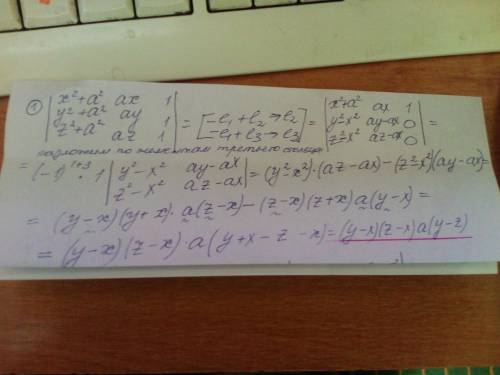 ① | x²+a² ax 1 | = [ -l₁+l₂→l₂ ] = | x²+a² ax 1 | =
| y²+a² ay 1 | [ -l₁+l₃→l₃ ] | y²-x² ay-ax 0 |
| z²+a² az 1 | | z²-x² az-ax 0 |
разложим по элементам третьего столбца
= (-1)¹⁺³ · 1 | y²-x² ay-ax | = (y²-x²)·(az-ax)-(z²-x²)(ay-ax)=
| z²-x² az-ax |
= (y-x)(y+x)·a(z-x)-(z-x)(z+x)a(y-x)=
= (y-x)(z-x)·a(y+x-z-x)=(y-x)(z-x)a(y-z)